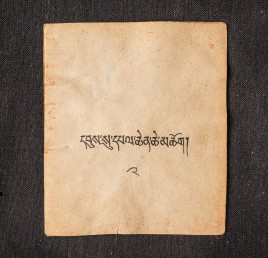 དབུས་སུ་དཔལ་ཆེན་ཆེ་མཆོག།
༢